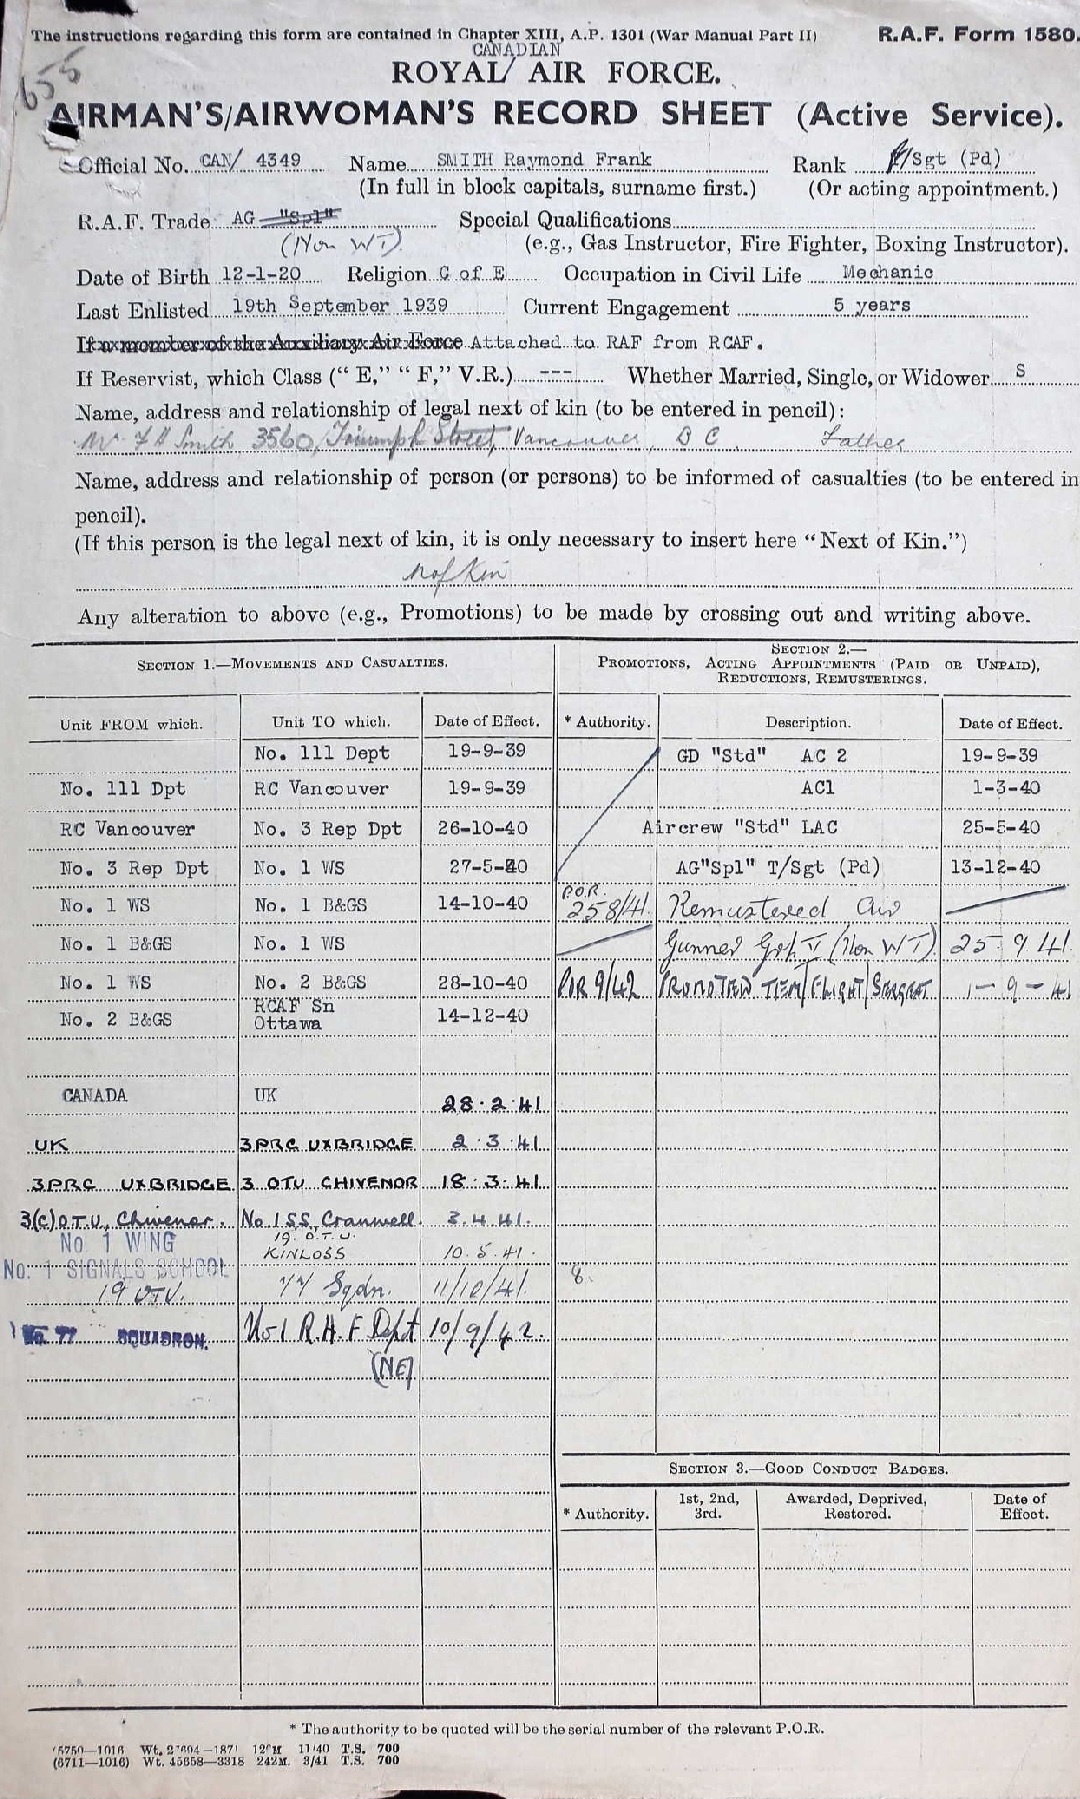 The instructions regarding this form are contained in Chapter XIII, A.P. 1301 (War Manual Part II)
R.A.F. Form 1580.
655
CANADIAN
ROYAL/ AIR FORCE.
AIRMAN'S/AIRWOMAN'S RECORD SHEET (Active Service).
Official No. CAN/ 4349 Name SMITH Raymond Frank Rank F/Sgt (Pd)
(In full in block capitals, surname first.) (Or acting appointment.)
R.A.F. Trade AG "Spl" Special Qualifications
(Non WT) (e.g., Gas Instructor, Fire Fighter, Boxing Instructor).
Date of Birth 12-1-20 Religion C of E Occupation in Civil Life Mechanic
Last Enlisted 19th September 1939 Current Engagement 5 years
If a member of the Auxiliary Air Force Attached to RAF from RCAF.
If Reservist, which Class (" E," " F," V.R.) --- Whether Married, Single, or Widower S
Name, address and relationship of legal next of kin (to be entered in pencil):
Mr F H Smith, 3560, Triumph Street, Vancouver, B C Father
Name, address and relationship of person (or persons) to be informed of casualties (to be entered in
pencil).
(If this person is the legal next of kin, it is only necessary to insert here "Next of Kin.")
N of Kin
Any alteration to above (e.g., Promotions) to be made by crossing out and writing above.
Section 1.—Movements and Casualties.
Unit FROM which. Unit TO which. Date of Effect.
No. 111 Dept 19-9-39
No. 111 Dpt RC Vancouver 19-9-39
RC Vancouver No. 3 Rep Dpt 26-10-40
No. 3 Rep Dpt No. 1 WS 27-5-40
No. 1 WS No. 1 B&GS 14-10-40
No. 1 B&GS No. 1 WS
No. 1 WS No. 2 B&GS 28-10-40
No. 2 B&GS RCAF Sn Ottawa 14-12-40
CANADA UK 28.2.41
UK 3PRC UXBRIDGE 2.3.41
3PRC UXBRIDGE 3 OTU CHIVENOR 18.3.41
3(c) O.T.U, Chivenor. No 1 S.S, Cranwell. 3.4.41.
No 1 WING
No. 1 SIGNALS SCHOOL 19 O.T.U. KINLOSS 10.5.41.
19 OTU. 77 Sqdn. 11/10/41
No. 77 SQUADRON. No 1 R.A.F Dept (NE) 10/9/42.
Section 2.—
Promotions, Acting Appointments (Paid or Unpaid),
Reductions, Remusterings.
* Authority. Description. Date of Effect.
GD "Std" AC 2 19-9-39
AC1 1-3-40
Aircrew "Std" LAC 25-5-40
AG"Spl" T/Sgt (Pd) 13-12-40
P.O.R. 258/41 Remustered Air
Gunner Gp V (Non WT) 25 9 41
POR 9/42 PROMOTED TEM/FLIGHT/SERGEANT 1-9-41
8.
Section 3.—Good Conduct Badges.
* Authority. 1st, 2nd, 3rd. Awarded, Deprived, Restored. Date of Effect.
* The authority to be quoted will be the serial number of the relevant P.O.R.
11/40 T.S. 700
(6711—1016) Wt. 45858—3318 242M. 3/41 T.S. 700